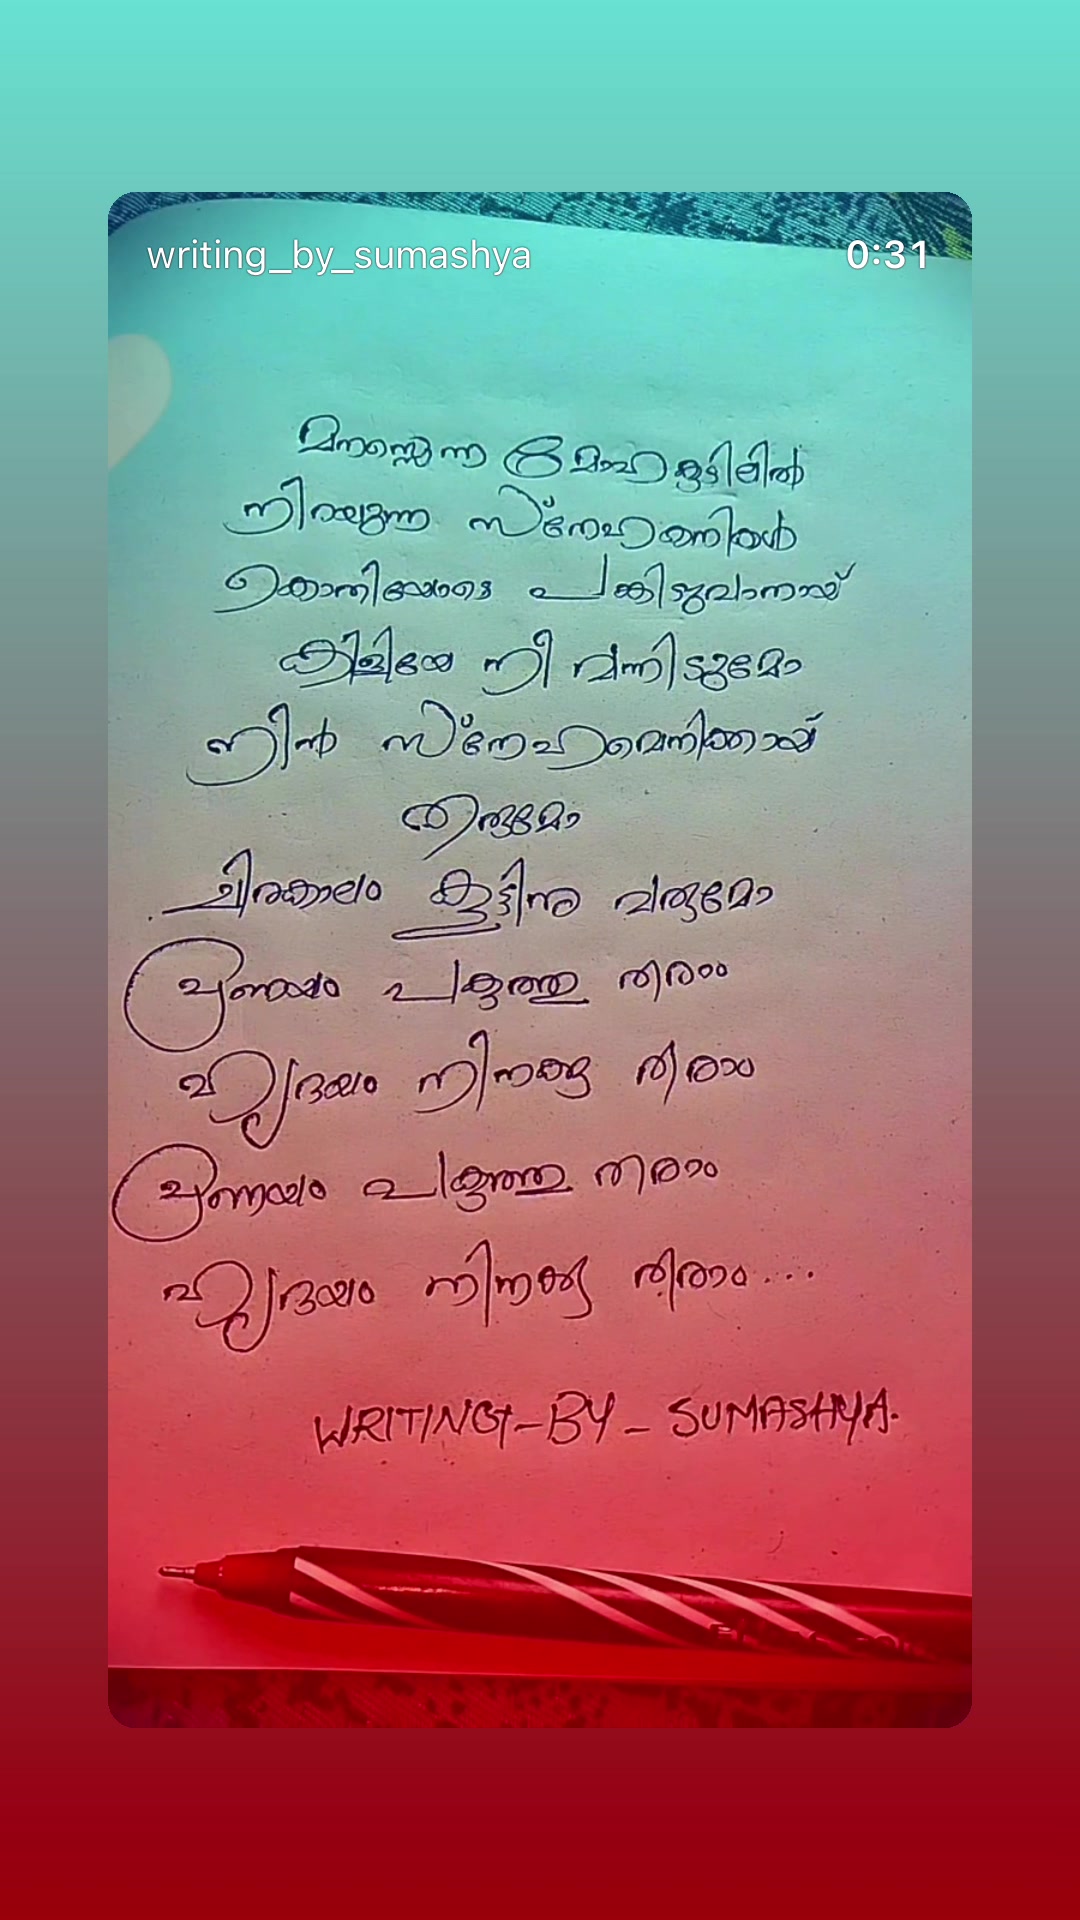 writing_by_sumashya
0:31
മനസ്സെന്ന മോഹകുടിലിൽ
നിറയുന്ന സ്നേഹത്തിൻ
കൊതിയോടെ പങ്കിടുവാനായ്
കിളിയേ നീ വന്നിടുമോ
നിൻ സ്നേഹമെനിക്കായ്
തരുമോ
ചിരകാലം കൂട്ടിനു വരുമോ
പ്രണയം പകുത്തു തരാം
ഹൃദയം നിനക്കു തരാം
പ്രണയം പകുത്തു തരാം
ഹൃദയം നിനക്കു തരാം....
WRITING-BY-SUMASHYA.